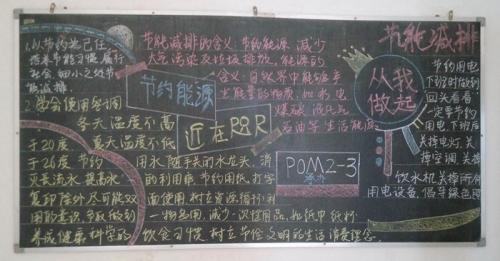 节能减排
1.以节约为己任
培养节能习惯 履行
社会 细小之处节
能减排
2.学会使用空调
冬天温度不高
于20度 夏天温度不低
于26度 节约
用水 随手关的水龙头、消
灭长流水 提高水
的利用率 节约用纸、打字
复印除外尽可能双
面使用、树立资源循环利
用的意识、争取做到
一物多用、减少一次性用品
养成健康科学的
饮食习惯 树立节俭文明的生活消费理念
节能减排的含义:节约能源 减少
大气污染及垃圾排放、能源的
含义:自然界中能够产
生能量的物质、如水电
煤碳 液化气
石油等生活能源
节约能源
近在RQR
POM2-3
从我
做起
节约用电
下班时做到
回头看看
一定要节约
用电、下班后
关掉电灯、关
掉空调、关掉
饮水机 关掉所有
用电设备、倡导绿色照